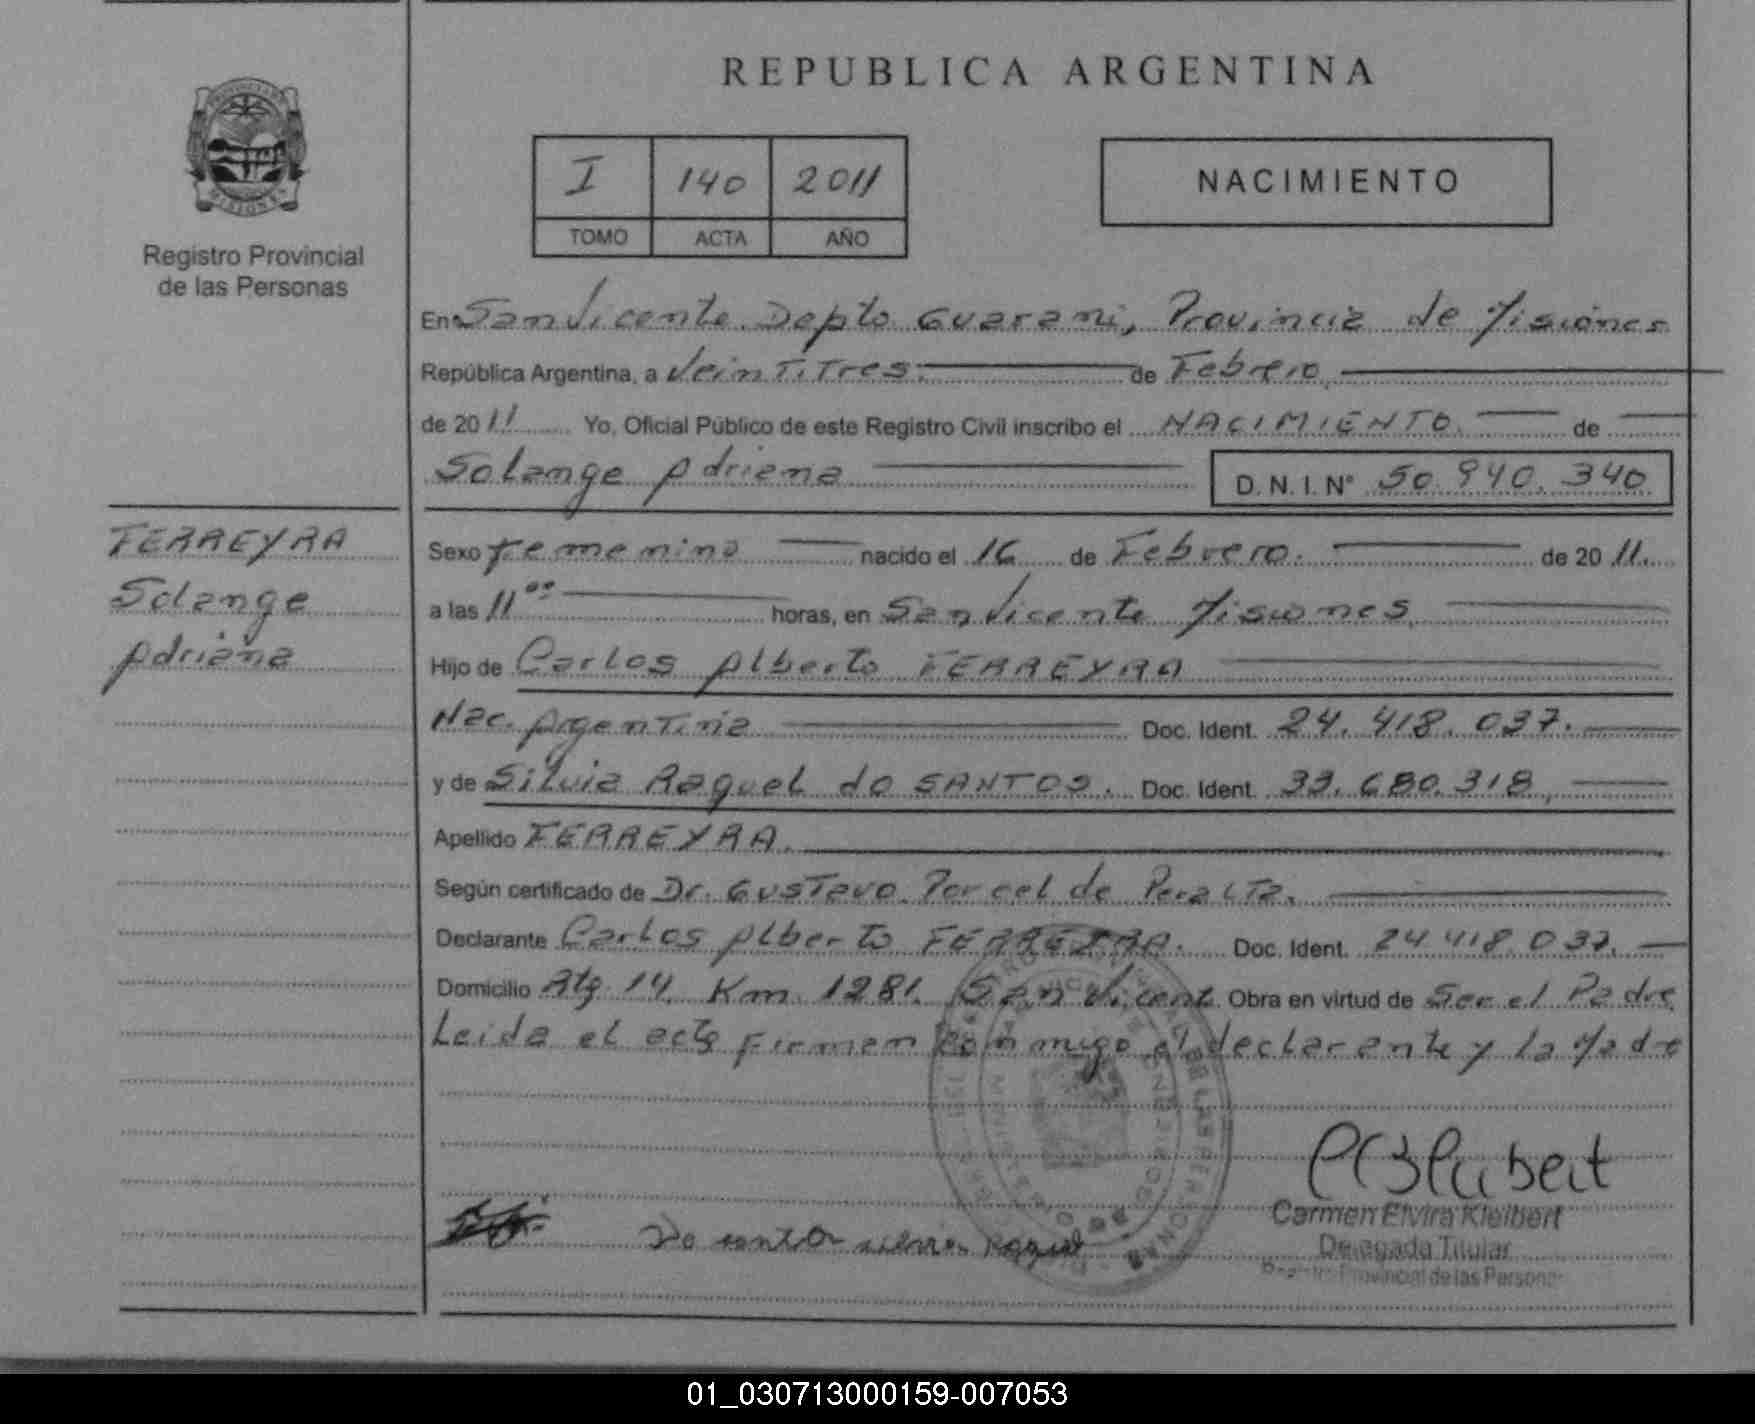 REPUBLICA ARGENTINA
PROVINCIA DE
MISIONES
Registro Provincial
de las Personas
I 140 2011
TOMO ACTA AÑO
NACIMIENTO
En San Vicente Depto Guarani, Provincia de Misiones
República Argentina, a Veintitres de Febrero
de 2011 Yo, Oficial Público de este Registro Civil inscribo el NACIMIENTO de
Solange Adriana D.N.I.Nº 50.940.340
FERREYRA
Solange
Adriana
Sexo Femenino nacido el 16 de Febrero. de 2011.
a las 11⁰⁰ horas, en San Vicente Misiones
Hijo de Carlos Alberto FERREYRA
Nac. Argentina Doc. Ident. 24.418.037.
y de Silvia Raquel do SANTOS. Doc. Ident. 33.680.318
Apellido FERREYRA.
Según certificado de Dr. Gustavo Porcel de Peralta.
Declarante Carlos Alberto FERREYRA. Doc. Ident. 24.418.037.
Domicilio Rta 14 Km 1281. San Vicent Obra en virtud de Ser el Padre
Leida el acta Firman conmigo el declarante y la Madre
Carmen Elvira Kleibert
Delegada Titular
Provincial de las Personas
01_030713000159-007053